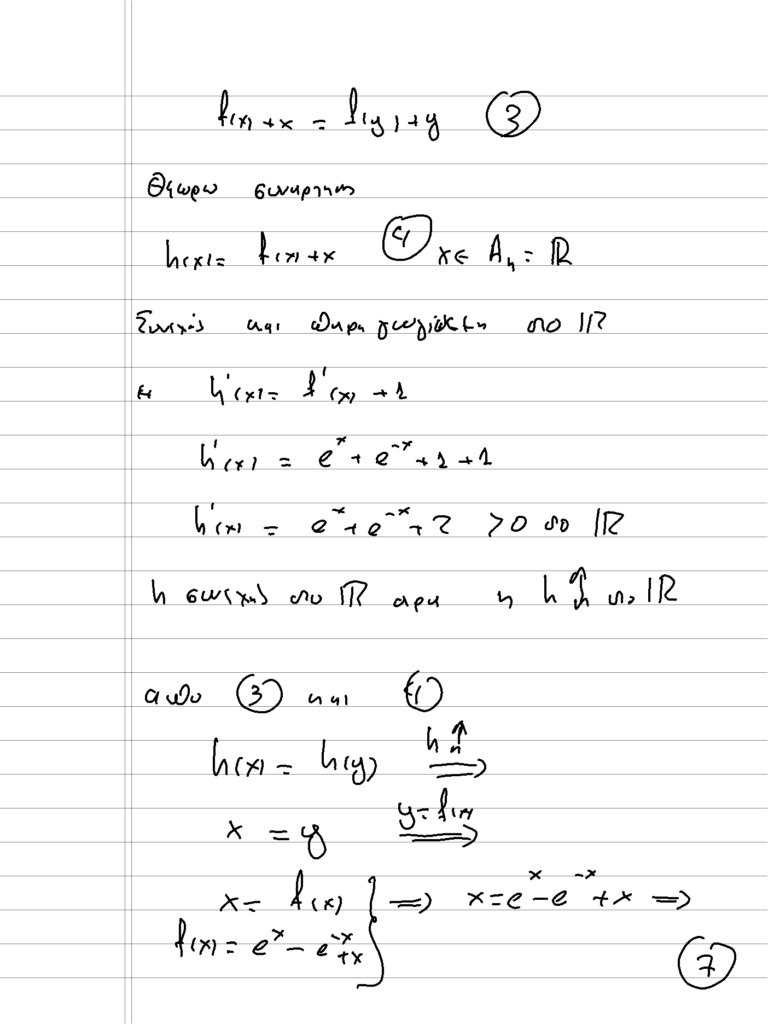 f(x) + x = f(y) + y ③
Θεωρω συναρτηση
h(x) = f(x) + x ④ x ∈ A_h = ℝ
Συνεχής και παραγωγίσιμη στο ℝ
με h'(x) = f'(x) + 1
h'(x) = e^x + e^{-x} + 1 + 1
h'(x) = e^x + e^{-x} + 2 > 0 στο ℝ
h συνεχης στο ℝ αρα η h ↑ στο ℝ
απο ③ και
h(x) = h(y) h ↑ ⟹
x = y y = f(x) ⟹
x = f(x) } ⟹ x = e^x - e^{-x} + x ⟹
f(x) = e^x - e^{-x} + x
⑦